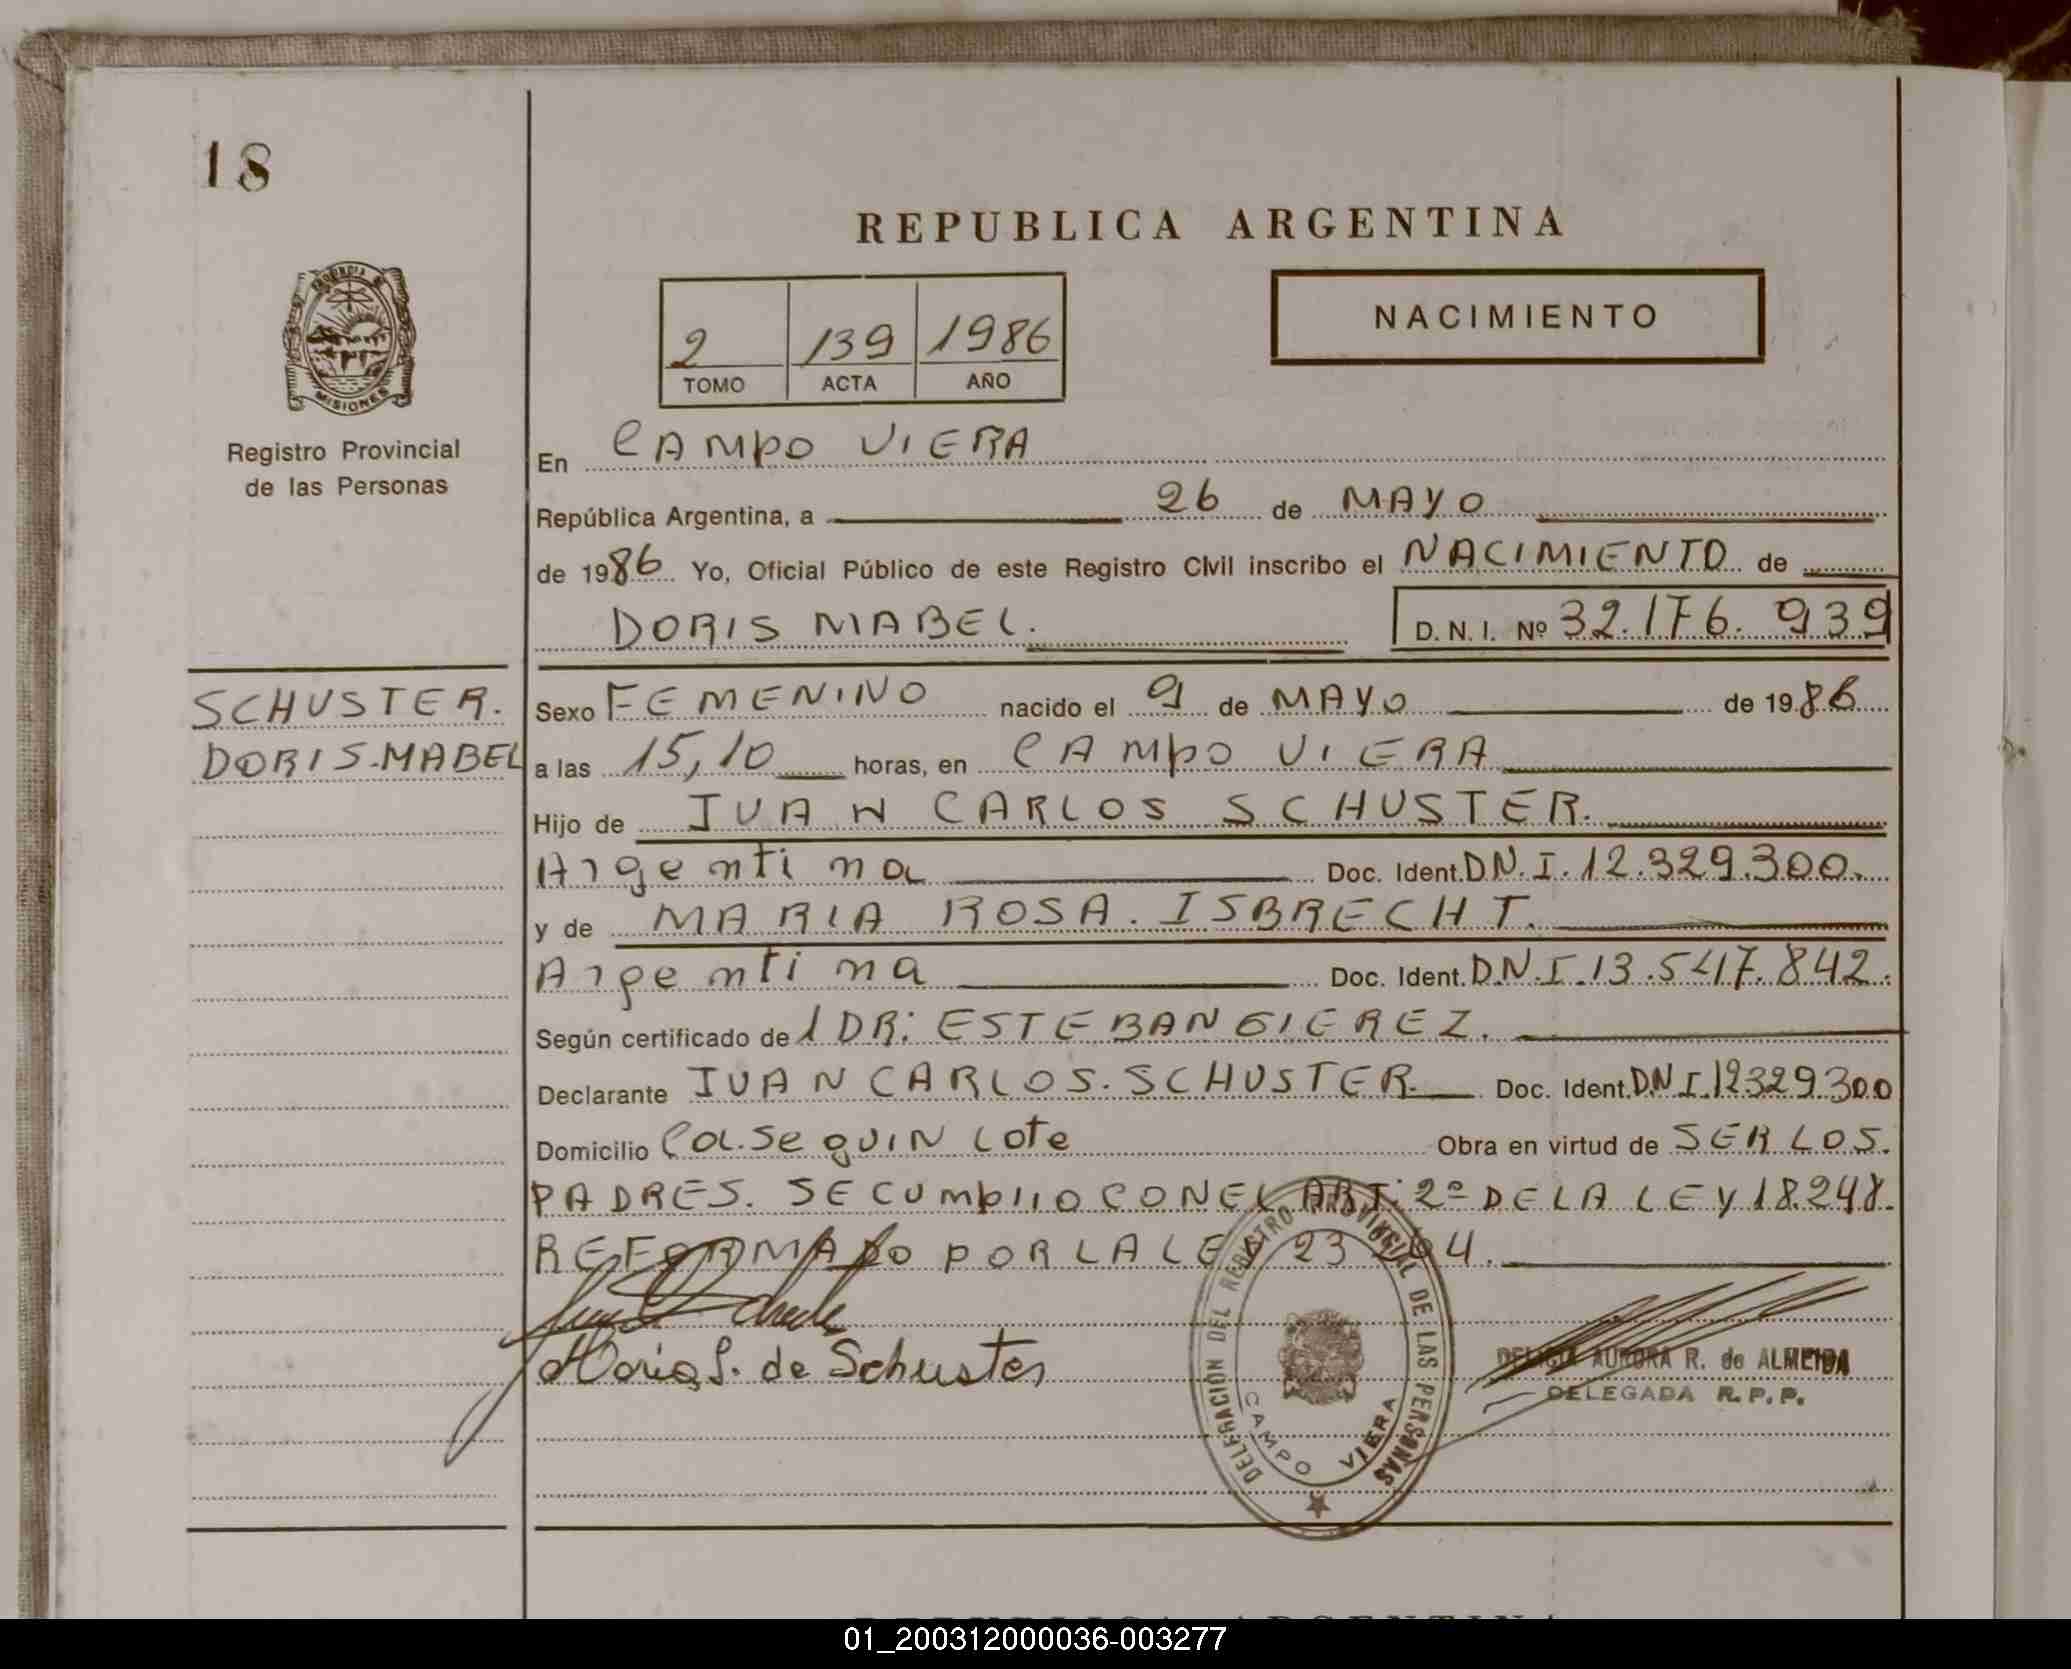 18
REPUBLICA ARGENTINA
NACIMIENTO
2 139 1986
TOMO ACTA AÑO
PROVINCIA DE
MISIONES
Registro Provincial
de las Personas
En CAMPO VIERA
República Argentina, a 26 de MAYO
de 1986 Yo, Oficial Público de este Registro CIvil inscribo el NACIMIENTO de
DORIS MABEL. D. N. I. Nº 32.176.939
SCHUSTER.
DORIS.MABEL
Sexo FEMENINO nacido el 9 de MAYO de 1986
a las 15,10 horas, en CAMPO VIERA
Hijo de JUAN CARLOS SCHUSTER.
Argentina Doc. Ident. D.N.I. 12.329.300.
y de MARIA ROSA. ISBRECHT.
Argentina Doc. Ident. D.N.I. 13.547.842.
Según certificado de 1 DR: ESTEBAN GIEREZ.
Declarante JUAN CARLOS. SCHUSTER. Doc. Ident. D.N.I. 12329300
Domicilio Col. Seguin Lote Obra en virtud de SER LOS.
PADRES. SE CUMPLIO CON EL ART: 2º DE LA LEY 18.248.
REFORMADO POR LA LEY 23 4.
Maria I. de Schuster
DELEGACION DEL REGISTRO PROVINCIAL DE LAS PERSONAS
CAMPO VIERA
DELICIA AURORA R. de ALMEIDA
DELEGADA R. P. P.
REPUBLICA ARGENTINA
01_200312000036-003277